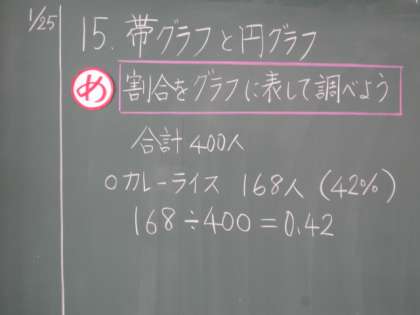 1/25
15. 帯グラフと円グラフ
め 割合をグラフに表して調べよう
合計 400人
○カレーライス 168人 (42%)
168÷400=0.42